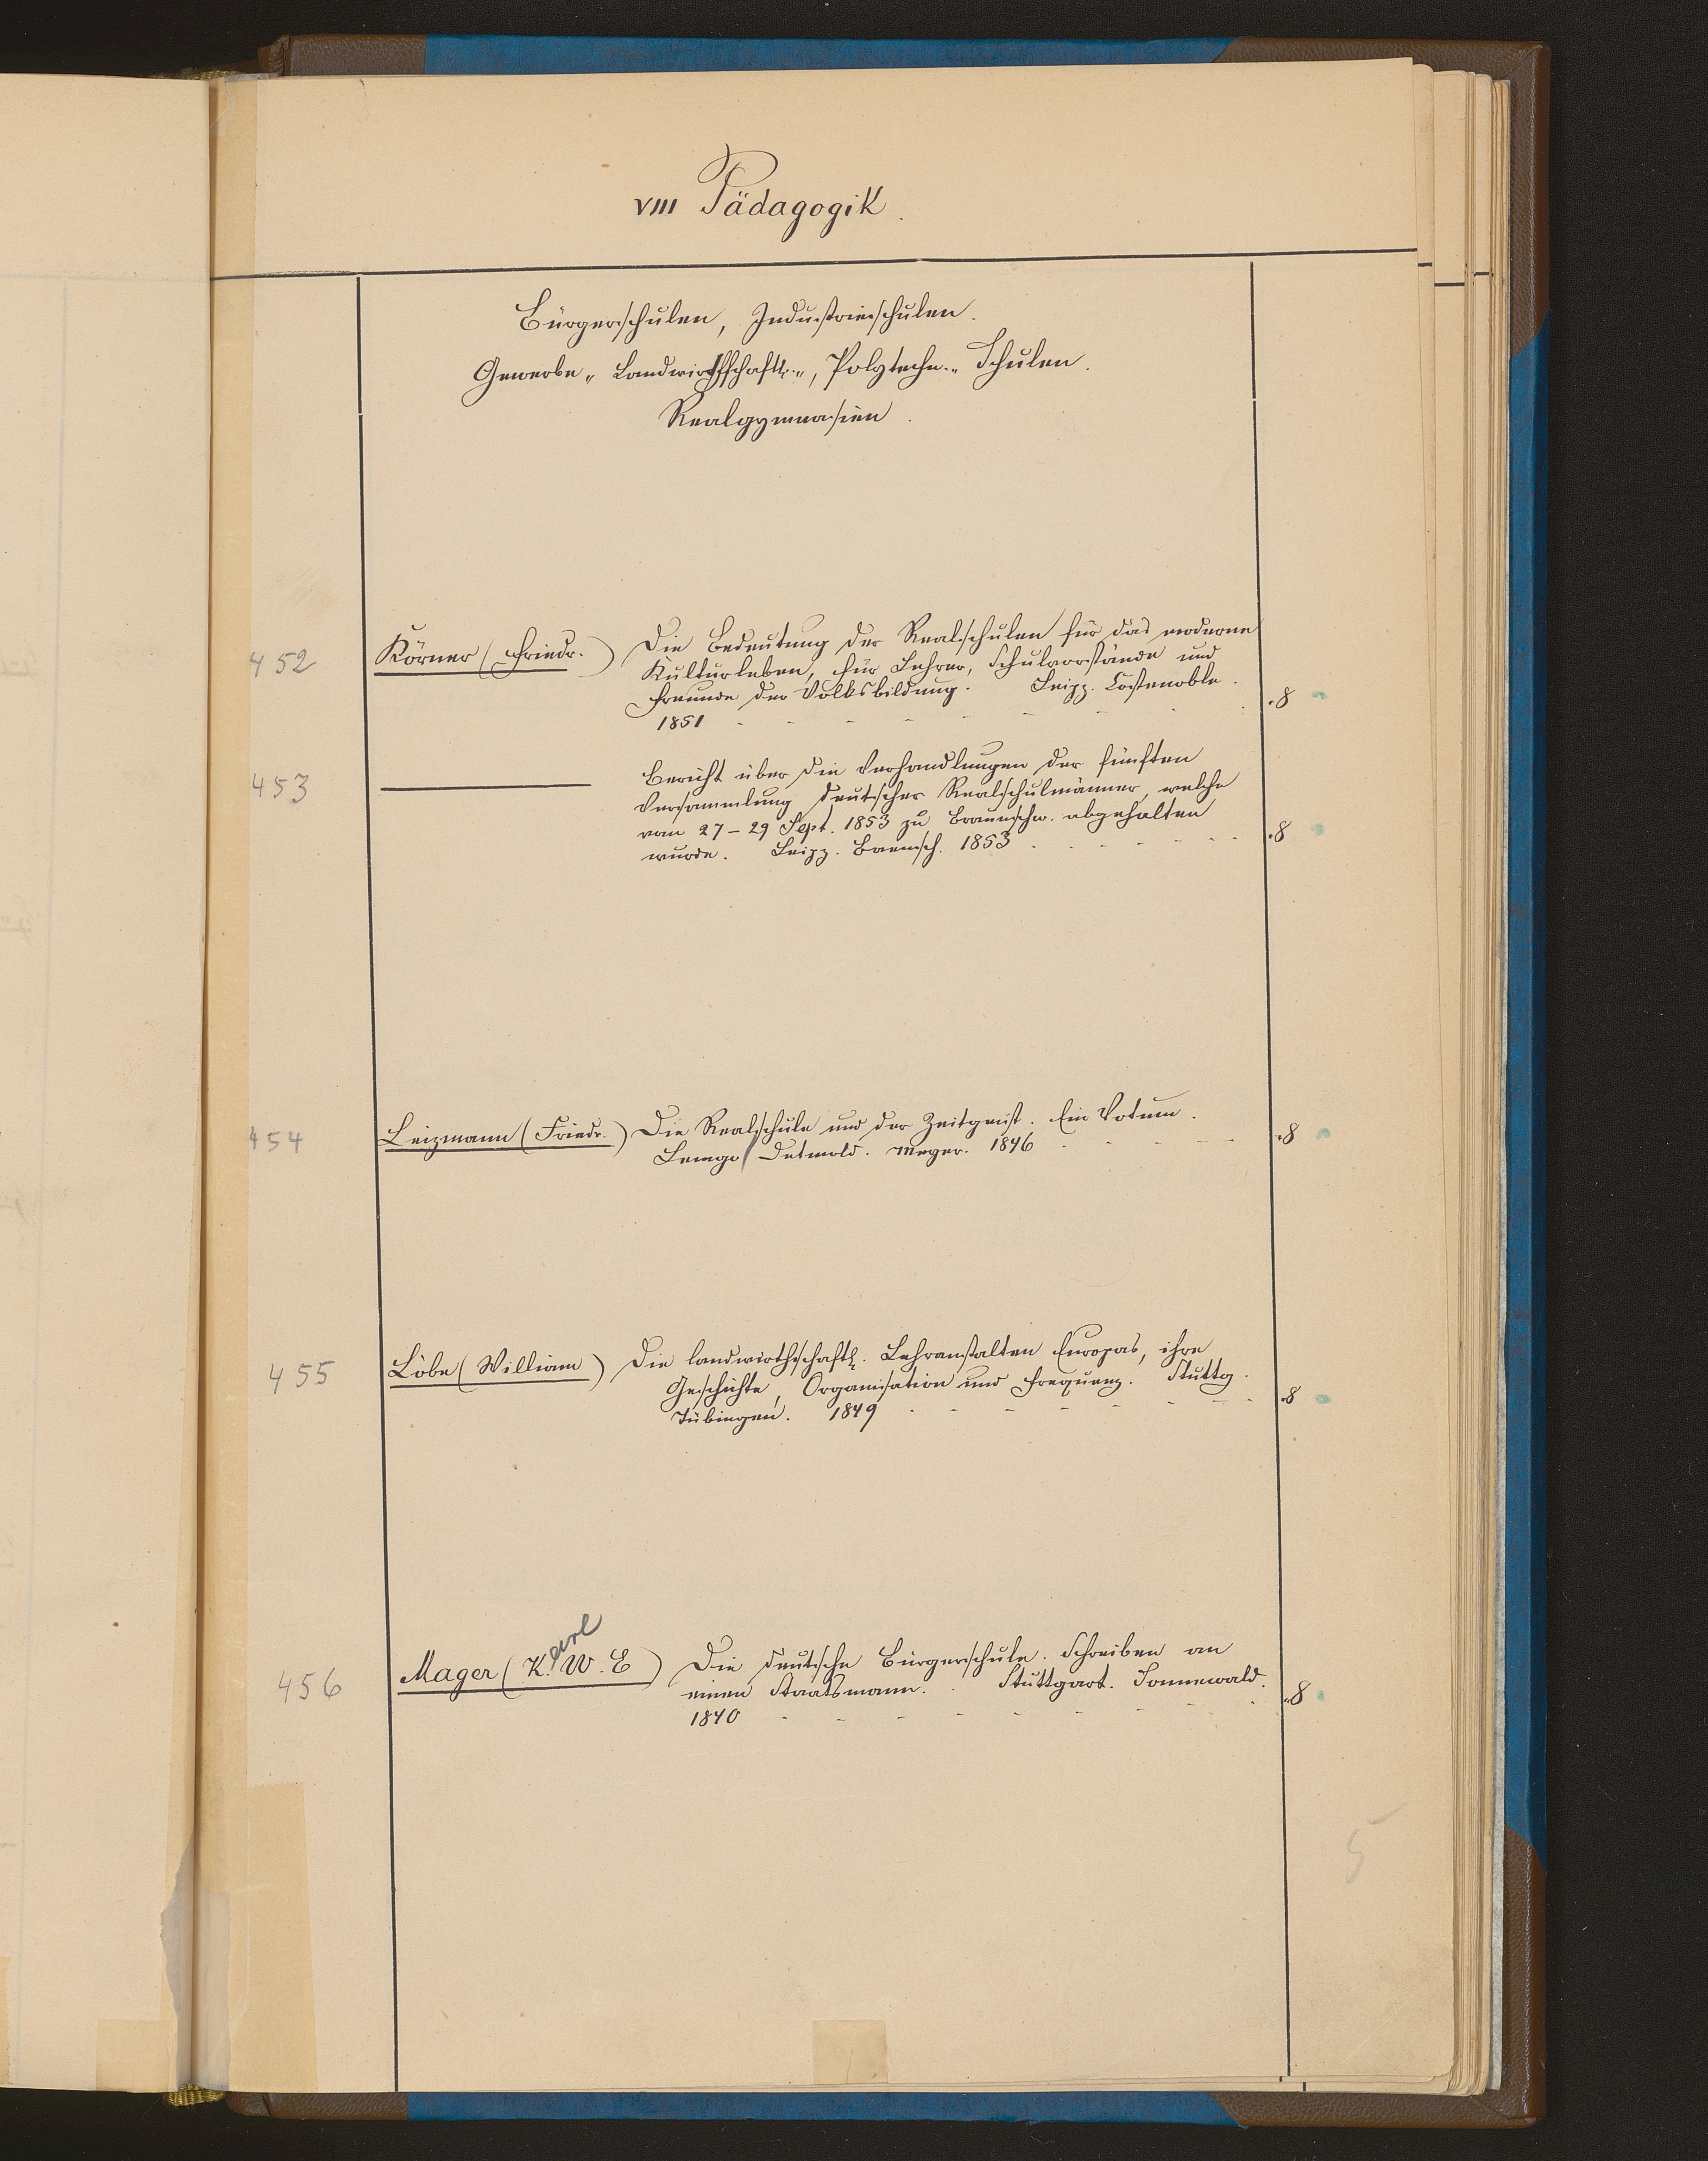 VIII Pädagogik.
Bürgerschulen, Industrieschulen.
Gewerbe-, Landwirthschaftl.-, Polytechn.- Schulen.
Realgymnasien.
452 Körner (Friedr.) Die Bedeutung der Realschulen für das moderne
Kulturleben, für Lehrer, Schulvorstände und
Freunde der Volksbildung. Leipz. Costenoble.
1851 - - - - - - - - - .8
453 ——— Bericht über die Verhandlungen der fünften
Versammlung deutscher Realschulmänner, welche
vom 27-29 Sept. 1853 zu Braunschw. abgehalten
wurde. Leipz. Baensch. 1853 - - - - - .8
454 Leizmann (Friedr.) Die Realschule und der Zeitgeist. Ein Votum.
Lemgo / Detmold. Meyer. 1846 - - - - .8
455 Löbe (William) Die landwirthschaftl. Lehranstalten Europas, ihre
Geschichte, Organisation und Frequenz. Stuttg.
Tübingen. 1849 - - - - - - - .8
arl
456 Mager (K. W. E) Die deutsche Bürgerschule. Schreiben an
einen Staatsmann. Stuttgart. Sonnewald.
1840 - - - - - - - - - .8
5